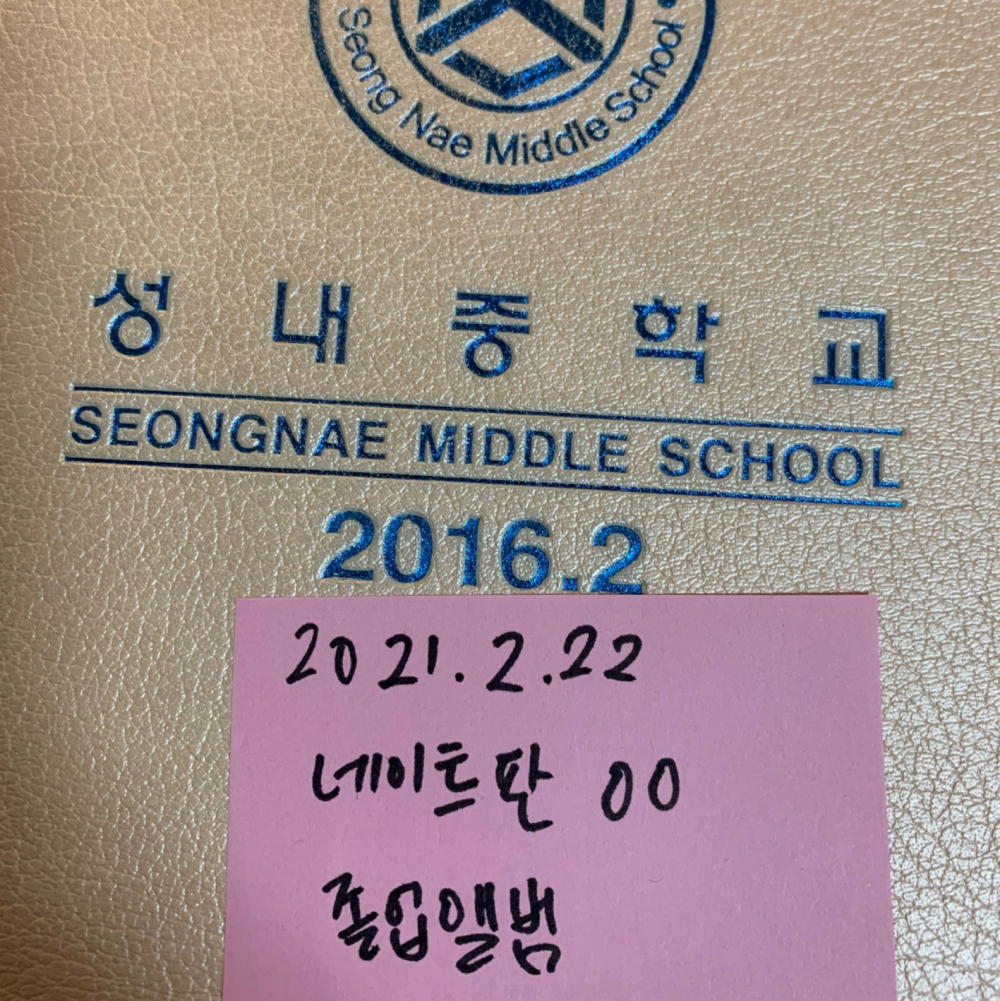 Seong Nae Middle School
성내중학교
SEONGNAE MIDDLE SCHOOL
2016.2
2021.2.22
네이트판 00
졸업앨범